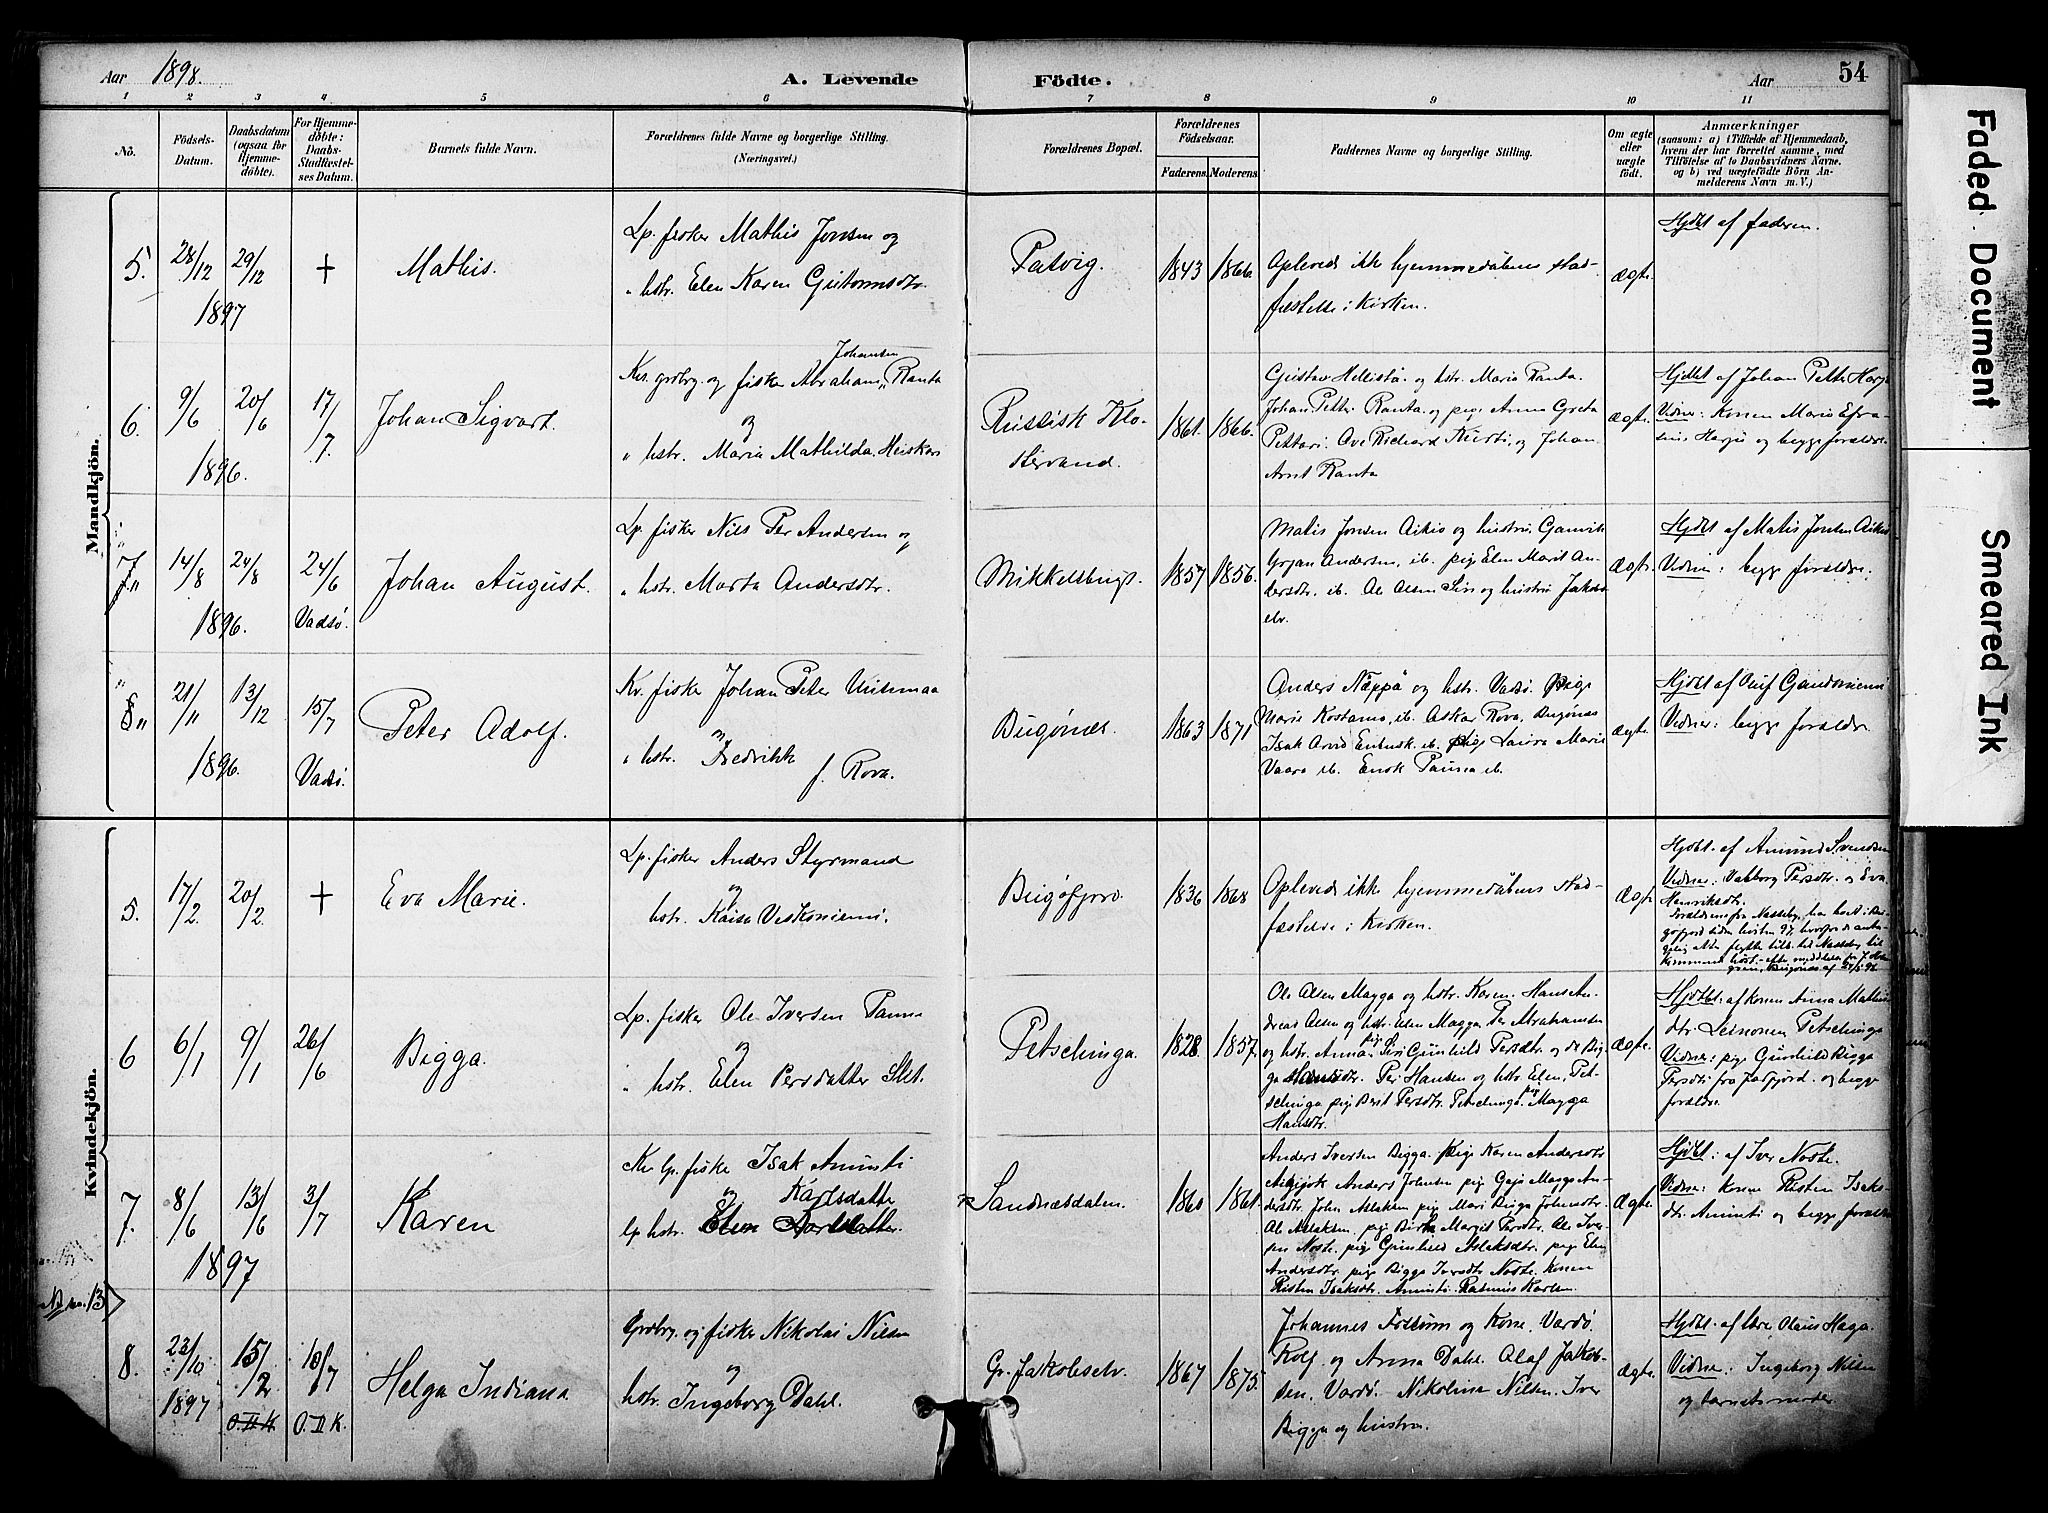 Aar 1898.
A. Levende
Födte.
Aar
54
1 2 3 4 5 6 7 8 9 10 11
No.
Födsels-
Datum.
Daabsdatum
(ogsaa for
Hjemme-
döbte).
For Hjemme-
döbte:
Daabs-
Stadfæstel-
ses Datum.
Barnets fulde Navn.
Forældrenes fulde Navne og borgerlige Stilling.
(Næringsvei.)
Forældrenes Bopæl.
Forældrenes
Födselsaar.
Faderens.
Moderens.
Faddernes Navne og borgerlige Stilling.
Om ægte
eller
uægte
födt.
Anmærkninger
(saasom: a) i Tilfælde af Hjemmedaab,
hvem der har forrettet samme, med
Tilföielse af to Daabsvidners Navne.
og b) ved uægtefödte Börn An-
melderens Navn m. V.)
Mandkjön.
5.
28/12
29/12
1897
+
Mathis.
Lp. fisker Mathis Jonsen og
" hstr. Elen Karen Guttormsdtr.
1843
1866
Oplevede ikke hjemmedåbens stad-
fæstelse i kirken.
ægte
Hjdbt af faderen.
6.
9/6
20/6
1896.
17/7.
Johan Sigvart.
Johansen
Kv. grdbr. og fisker Abraham " Ranta
og
" hstr. Maria Mathilda Heiskari
Russisk Klo-
stervand.
1861.
1866.
Gustav Hellistø og hstr. Maria Ranta.
Johan Petter Ranta og pige Anna Greta
Petteri. Ove Richard Kurti, og Johan
Arnt Ranta
ægte.
Hjdbt af Johan Petter Harju
Vidner: Konen Maria Efra-
sine Harju og begge forældre.
7.
14/8
24/8
1896.
24/6
Vadsö.
Johan August.
Lp. fisker Nils Per Andersen og
" hstr. Marta Andersdtr.
Mikkelsnes.
1857
1856.
Matis Jonsen Aikio og hustru, Gamvik
Andersen, ib. pige Elen Marit An-
dersdtr. ib. Ole Olsen Siri og hustru Jakobs-
elv.
ægte.
Hjdbt af Matis Jonsen Aikio
Vidner: begge forældre.
8.
21/11
13/12
1896.
15/7
Vadsö.
Peter Adolf.
Kv. fisker Johan Peter Uusimaa
og
" hstr. Fredrikke f. Rova.
Bugönes.
1863
1871
Anders Näppä og hstr. Vadsö. Pige
Marie Kostamo, ib. Oskar Rova, Bugönes
Isak Arvid ib. pige Laura Marie
Vaara ib. Enok Pauna ib.
ægte.
Hjdbt af Oluf
Vidner: begge forældre
Kvindekjön.
5.
17/2.
20/2.
+
Eva Marie.
Lp. fisker Anders Styrmand
og
hstr. Kaisa Veskoniemi.
Bugöfjord.
1836
1868
Oplevede ikke hjemmedåbens stad-
fæstelse i kirken.
ægte
Hjdbt. af Amund Svendsen
Vidner: Valborg Persdtr. og Eva
Henriksdtr.
6
6/1
9/1
26/6
Bigga.
Lp. fisker Ole Iversen Panne
og
" hstr. Elen Persdatter Slet.
Petschinga.
1828.
1857.
Ole Olsen Magga og hstr. Karen. Hans An-
dreas Olsen og hstr Elen Magga Per Abrahamsen
og hstr. Anna, pige Siri Gunhild Persdtr. og do Big-
ga Hansdtr. Per Hansen og hstr Elen, Pet-
schinga pige Berit Persdtr. Petschinga. pige Magga
Hansdtr.
ægte.
Hjdbt: af konen Anna Mathis-
dtr. Leinonen Petschinga
Vidner: pige Gunhild Bigga
Persdtr fra Jarfjord. og begge
forældre.
7.
8/6
13/6
1897
3/7
Karen
Kv. lp. fisker Isak Aminti
og Karlsdatter
lp hstr. Elen
Sandnesdalen.
1860
1861.
Anders Iversen Bigga. pige Karen Andersdtr
Anders Johnsen pige Gaja Magga An-
dersdtr. John Aslaksen pige Mari Bigga Johnsdtr.
Ole Aslaksen pige Birte Margit Persdtr. Ole Iver-
sen Noste. pige Gunhild Aslaksdtr. pige Elen
Andersdtr. pige Bigga Iversdtr Noste. Konen
Risten Isaksdtr. Aminti. Rasmus Karlsen
ægte.
Hjdbt: af Iver Noste.
Vidner: konen Risten Isaks-
dtr. Aminti og begge forældre
No. 13
8.
23/10
1897
15/2
O.II.K.
10/7
O.II.K.
Helga Indiana
Grdbr. og fisker Nikolai Nilsen
og
hstr. Ingeborg Dahl.
Gr. Jakobselv.
1867
1875.
Johannes Fossum og Kone, Vardö.
Rolf og Anna Dahl. Olaf Jakob-
sen, Vardö. Nikolina Nilsen. Iver
Bigga og hustru.
ægte.
Hjdbt. af lærer Olaus Haga.
Vidner: Ingeborg Nilsen
og barnets moder.
Faded Document
Smeared Ink